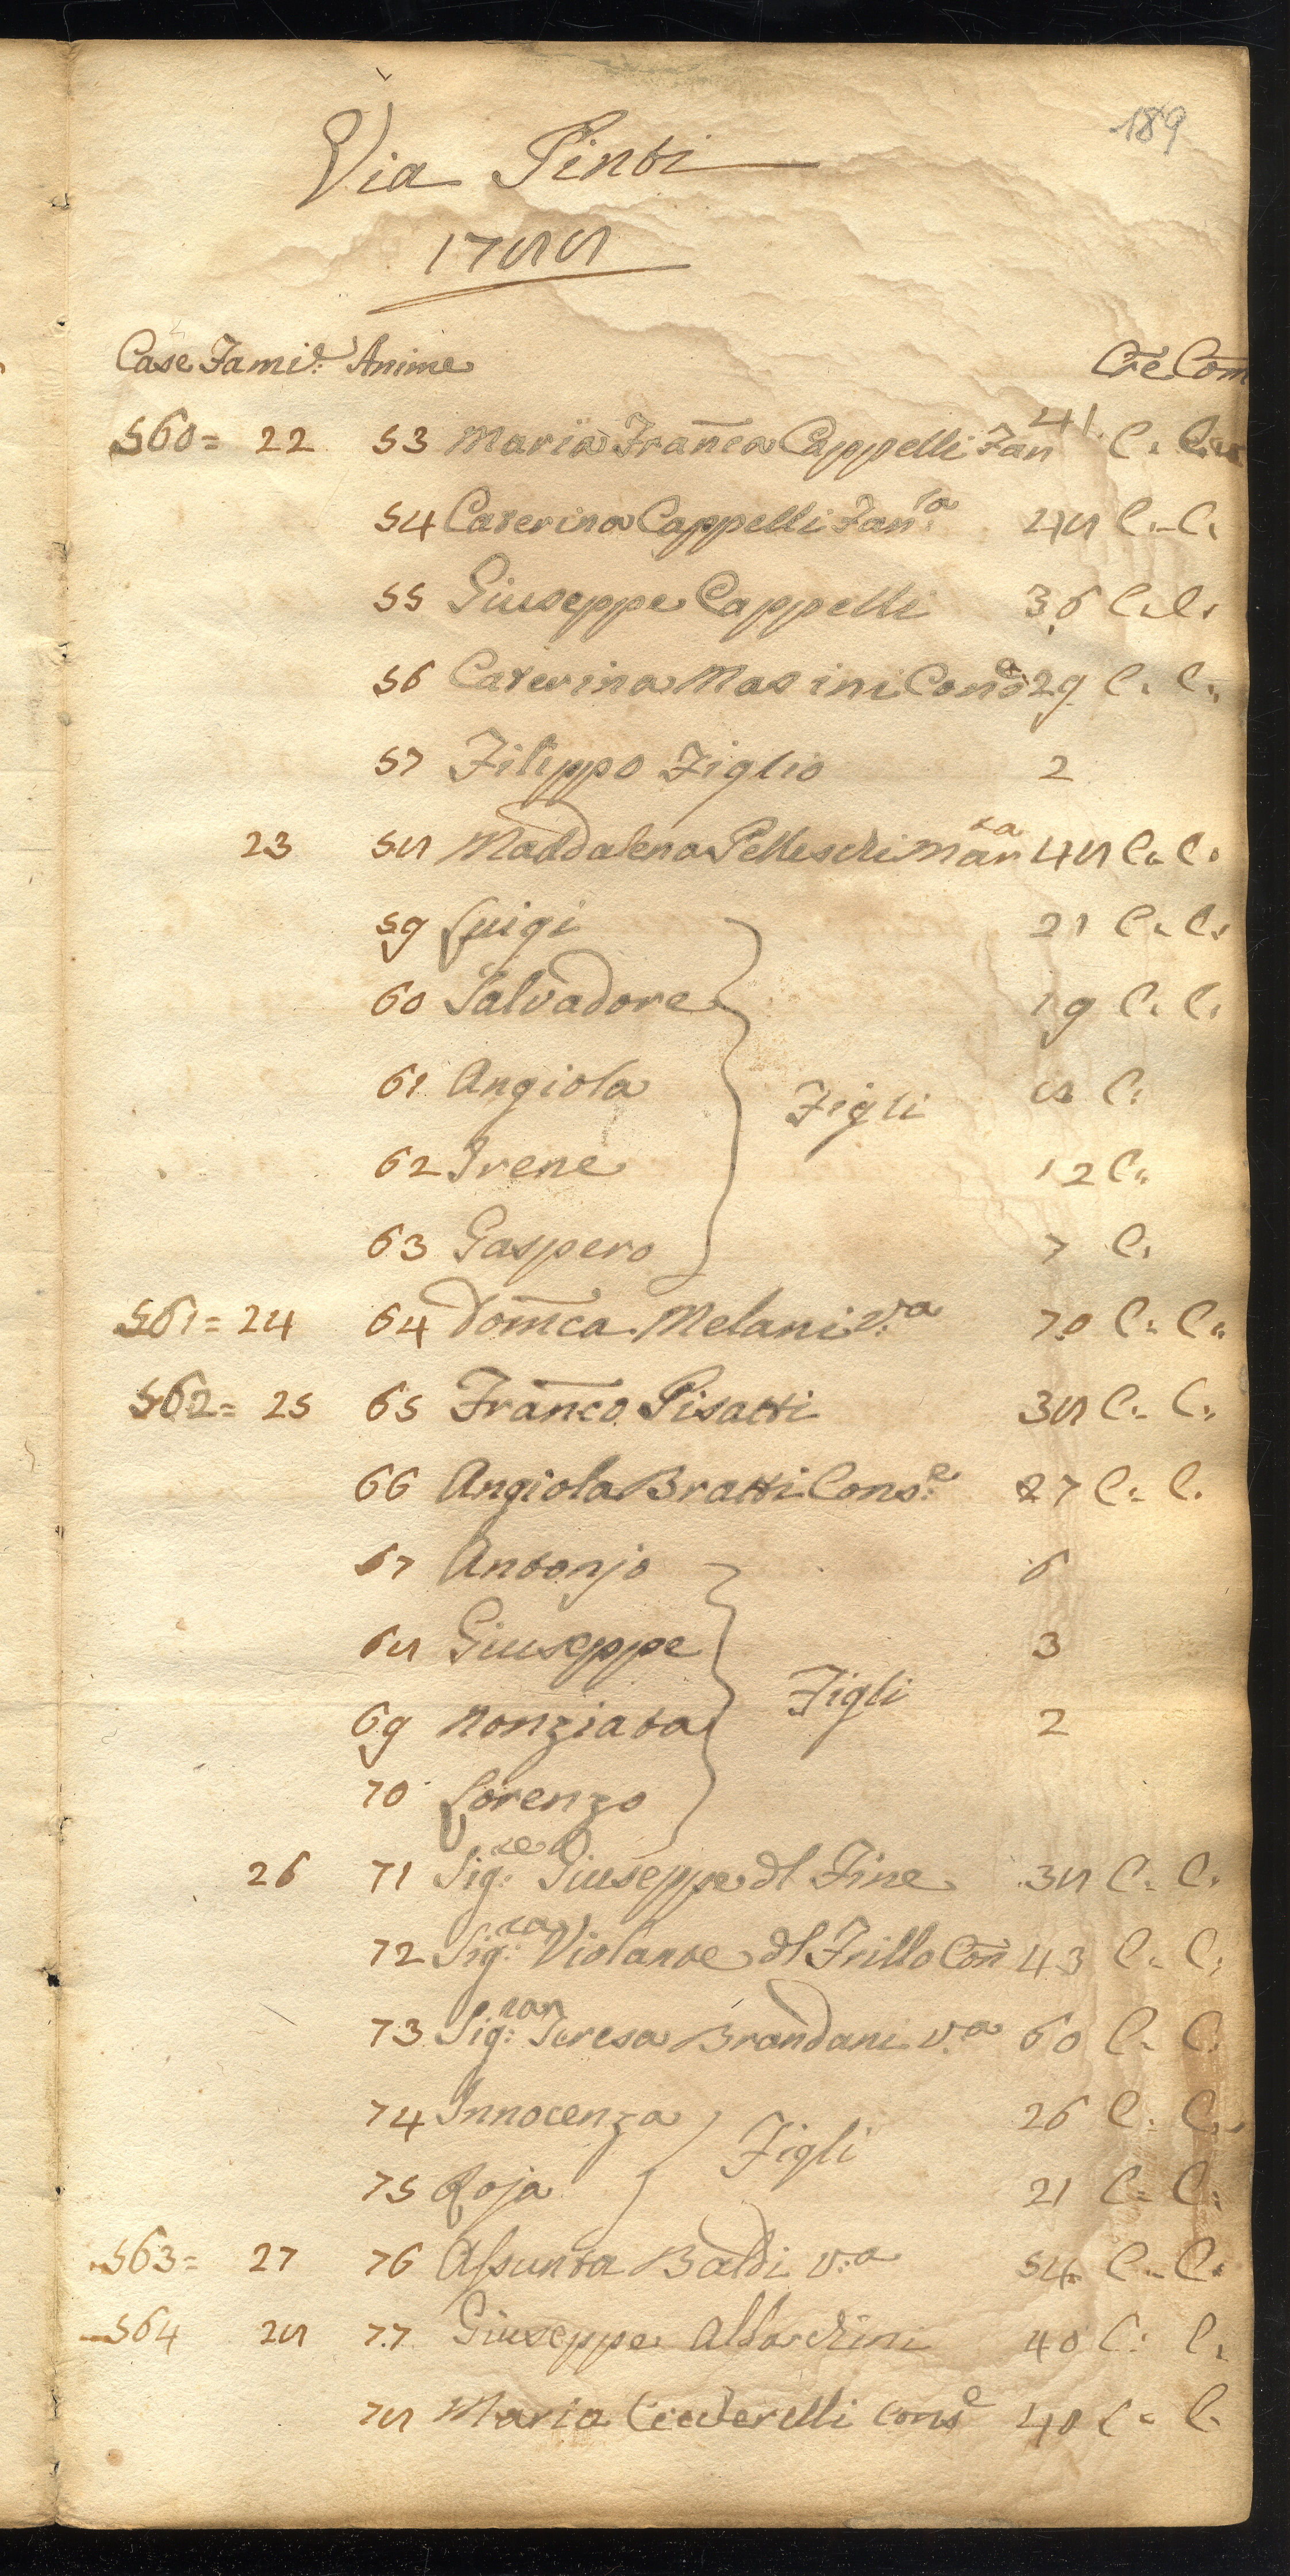 189
Via Pinti
1788
Case Famie: Anime Cre Com
560= 22 53 Maria Franca Cappelli Fan 41. C. C.
54 Caterina Cappelli Fan:la 48 C. C.
55 Giuseppe Cappelli 36 C. C.
56 Caterina Masini Cons:e 29 C. C.
57 Filippo Figlio 2
23 58 Maddalena Pelleschi Mar:ta 48 C. C.
59 Luigi 21 C. C.
60 Salvadore 19 C. C.
61 Angiola C.
Figli
62 Irene 12 C.
63 Gaspero 7 C.
561= 24 64 Domca Melani v:a 70 C. C.
562= 25 65 Franco Pisatti 38 C. C.
66 Angiola Bratti Cons:e 27 C. C.
67 Antonjo 6
68 Giuseppe 3
Figli
69 Nonziata 2
70 Lorenzo
26 71 Sig:re Giuseppe dl Fine 38 C. C.
72 Sig:ra Violante dl Frillo Con 43 C. C.
73 Sig:ra Teresa Brandani v:a 60 C. C.
74 Innocenza 26 C. C.
Figli
75 Roja 21 C. C.
563= 27 76 Assunta Baldi v:a 54 C. C.
564 28 77 Giuseppe 40 C. C.
78 Maria cons:e 40 C. C.